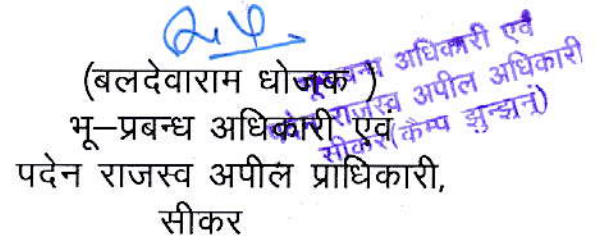 (बलदेवाराम धोजक )
भू–प्रबन्ध अधिकारी एवं
पदेन राजस्व अपील प्राधिकारी,
सीकर
भू-प्रबन्ध अधिकारी एवं
पदेन राजस्व अपील अधिकारी
सीकर(कैम्प झुन्झुनूं)